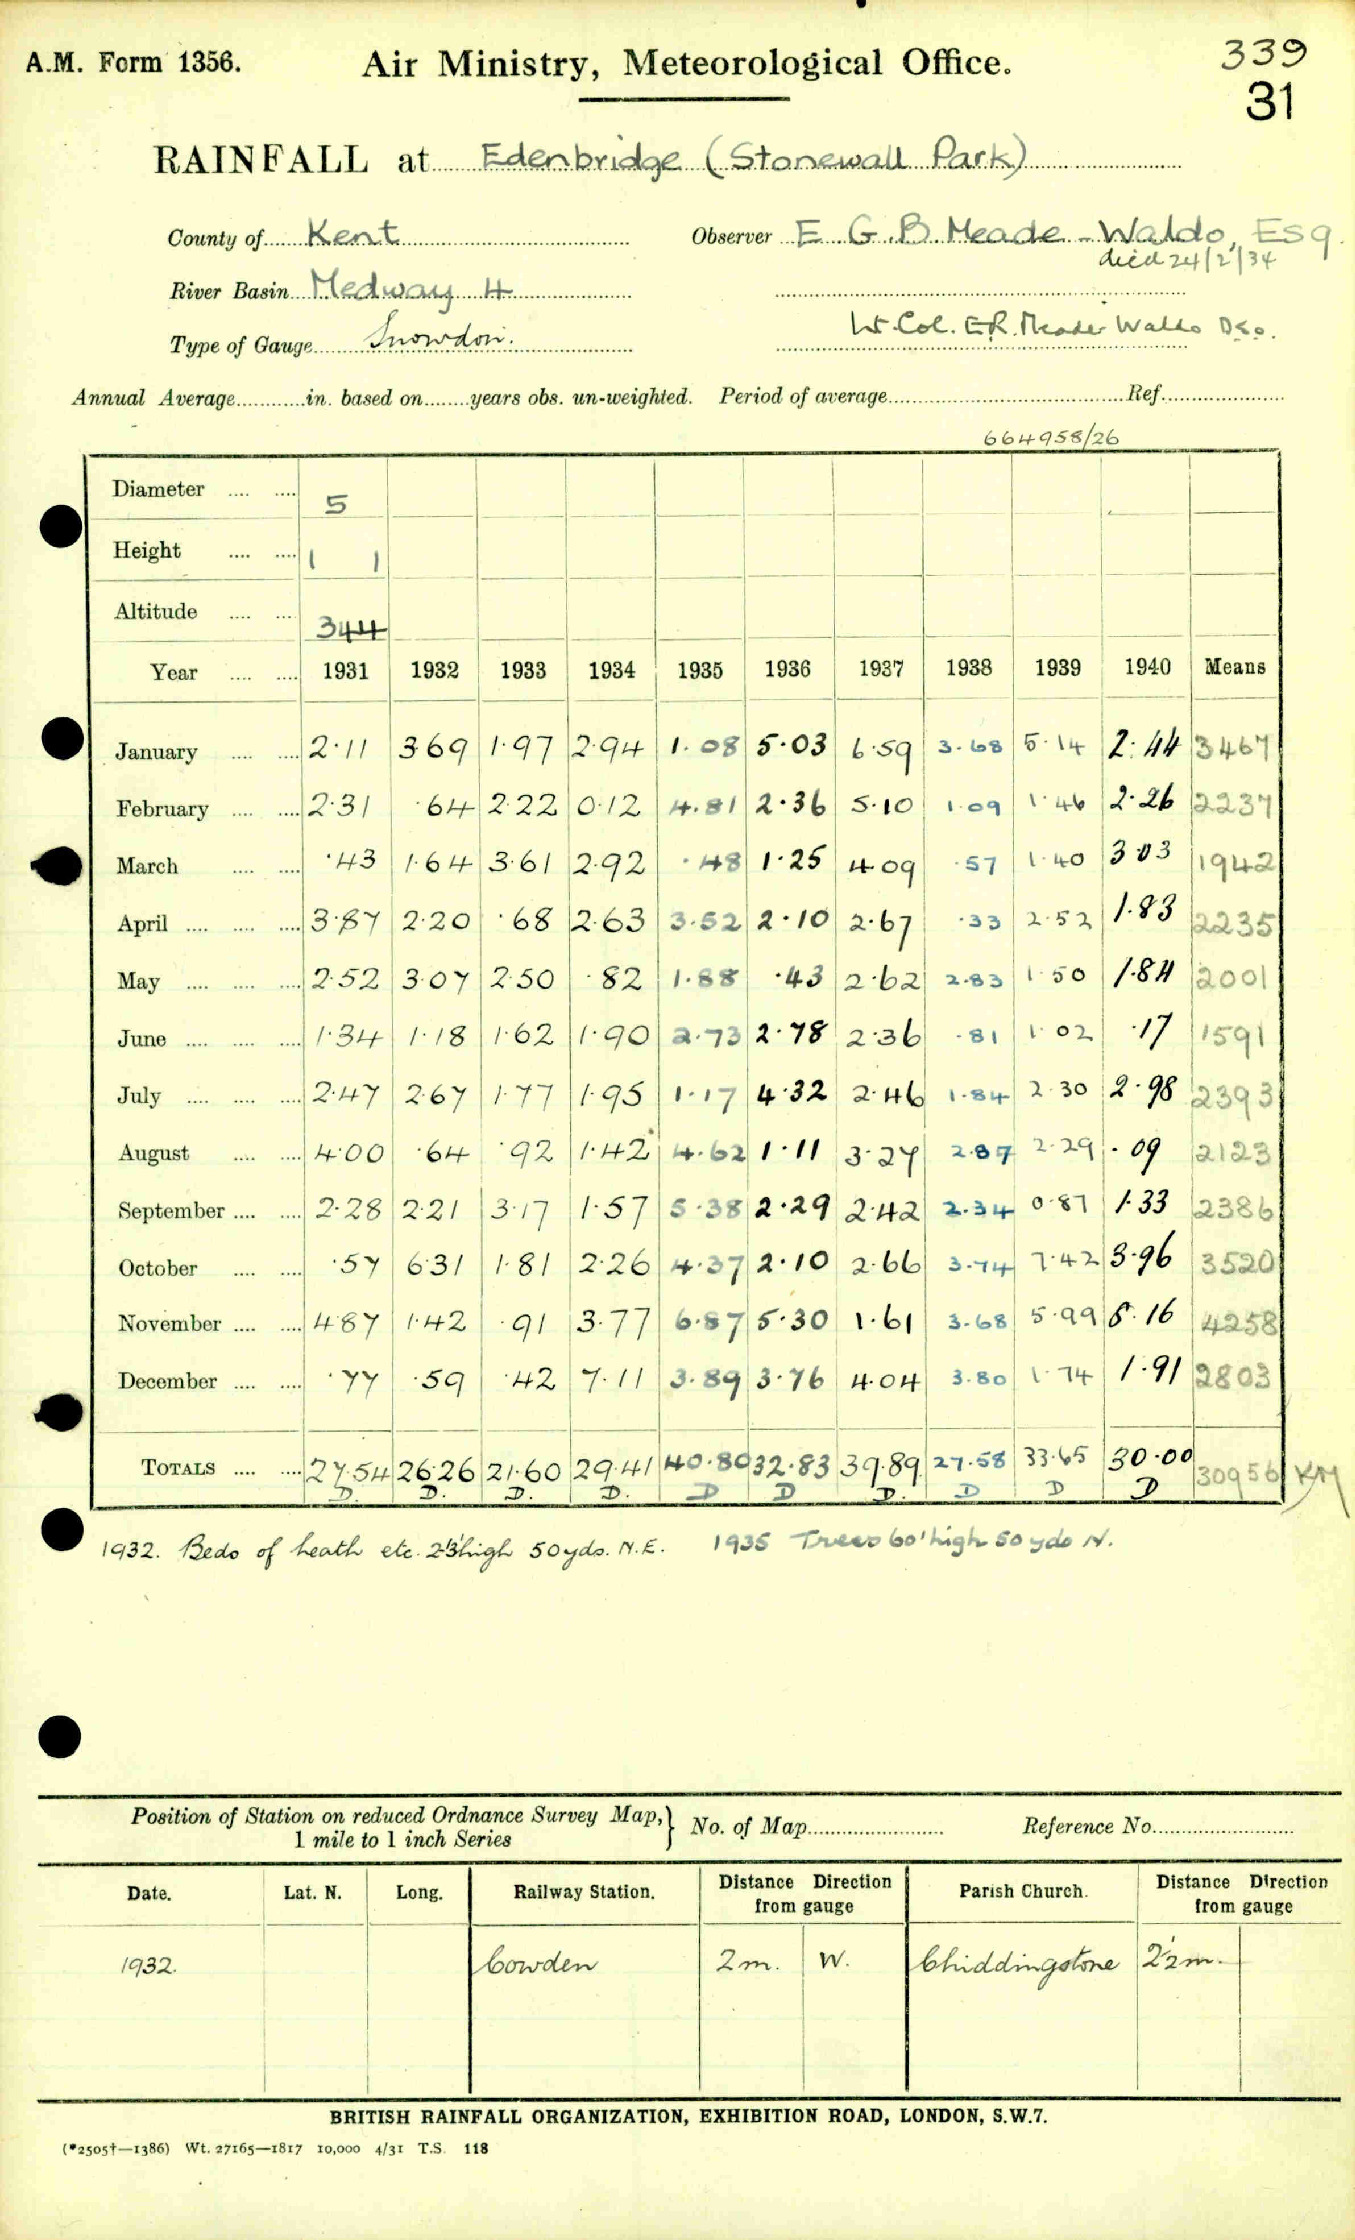 A.M. Form 1356. Air Ministry, Meteorological Office. 339
31
RAINFALL at Edenbridge (Stonewall Park)
County of Kent Observer E G.B. Meade-Waldo, Esq.
died 24/2/34
River Basin Medway 4
Type of Gauge Snowdon. Lt. Col. E.R. Meade Waldo D.S.O.
Annual Average in. based on years obs. un-weighted. Period of average Ref.
664958/26
Diameter 5
Height 1 1
Altitude 344
Year 1931 1932 1933 1934 1935 1936 1937 1938 1939 1940 Means
January 2.11 3.69 1.97 2.94 1.08 5.03 6.59 3.68 5.14 2.44 3467
February 2.31 .64 2.22 0.12 4.81 2.36 5.10 1.09 1.46 2.26 2237
March .43 1.64 3.61 2.92 .48 1.25 4.09 .57 1.40 3.03 1942
April 3.87 2.20 .68 2.63 3.52 2.10 2.67 .33 2.52 1.83 2235
May 2.52 3.07 2.50 .82 1.88 .43 2.62 2.83 1.50 1.84 2001
June 1.34 1.18 1.62 1.90 2.73 2.78 2.36 .81 1.02 .17 1591
July 2.47 2.67 1.77 1.95 1.17 4.32 2.46 1.84 2.30 2.98 2393
August 4.00 .64 .92 1.42 4.62 1.11 3.27 2.87 2.29 .09 2123
September 2.28 2.21 3.17 1.57 5.38 2.29 2.42 2.34 0.87 1.33 2386
October .57 6.31 1.81 2.26 4.37 2.10 2.66 3.74 7.42 3.96 3520
November 4.87 1.42 .91 3.77 6.87 5.30 1.61 3.68 5.99 8.16 4258
December .77 .59 .42 7.11 3.89 3.76 4.04 3.80 1.74 1.91 2803
TOTALS 27.54 26.26 21.60 29.41 40.80 32.83 39.89 27.58 33.65 30.00 30956
D. D. D. D. D D D. D D D
1932. Beds of heath etc. 2'3' high 50yds. N.E. 1935 Trees 60' high 50 yds N.
Position of Station on reduced Ordnance Survey Map, 1 mile to 1 inch Series } No. of Map Reference No.
Date. Lat. N. Long. Railway Station. Distance Direction from gauge Parish Church. Distance Direction from gauge
1932. Cowden 2m. W. Chiddingstone 2½m.
BRITISH RAINFALL ORGANIZATION, EXHIBITION ROAD, LONDON, S.W.7.
(*2505†—1386) Wt. 27165—1817 10,000 4/31 T.S. 118